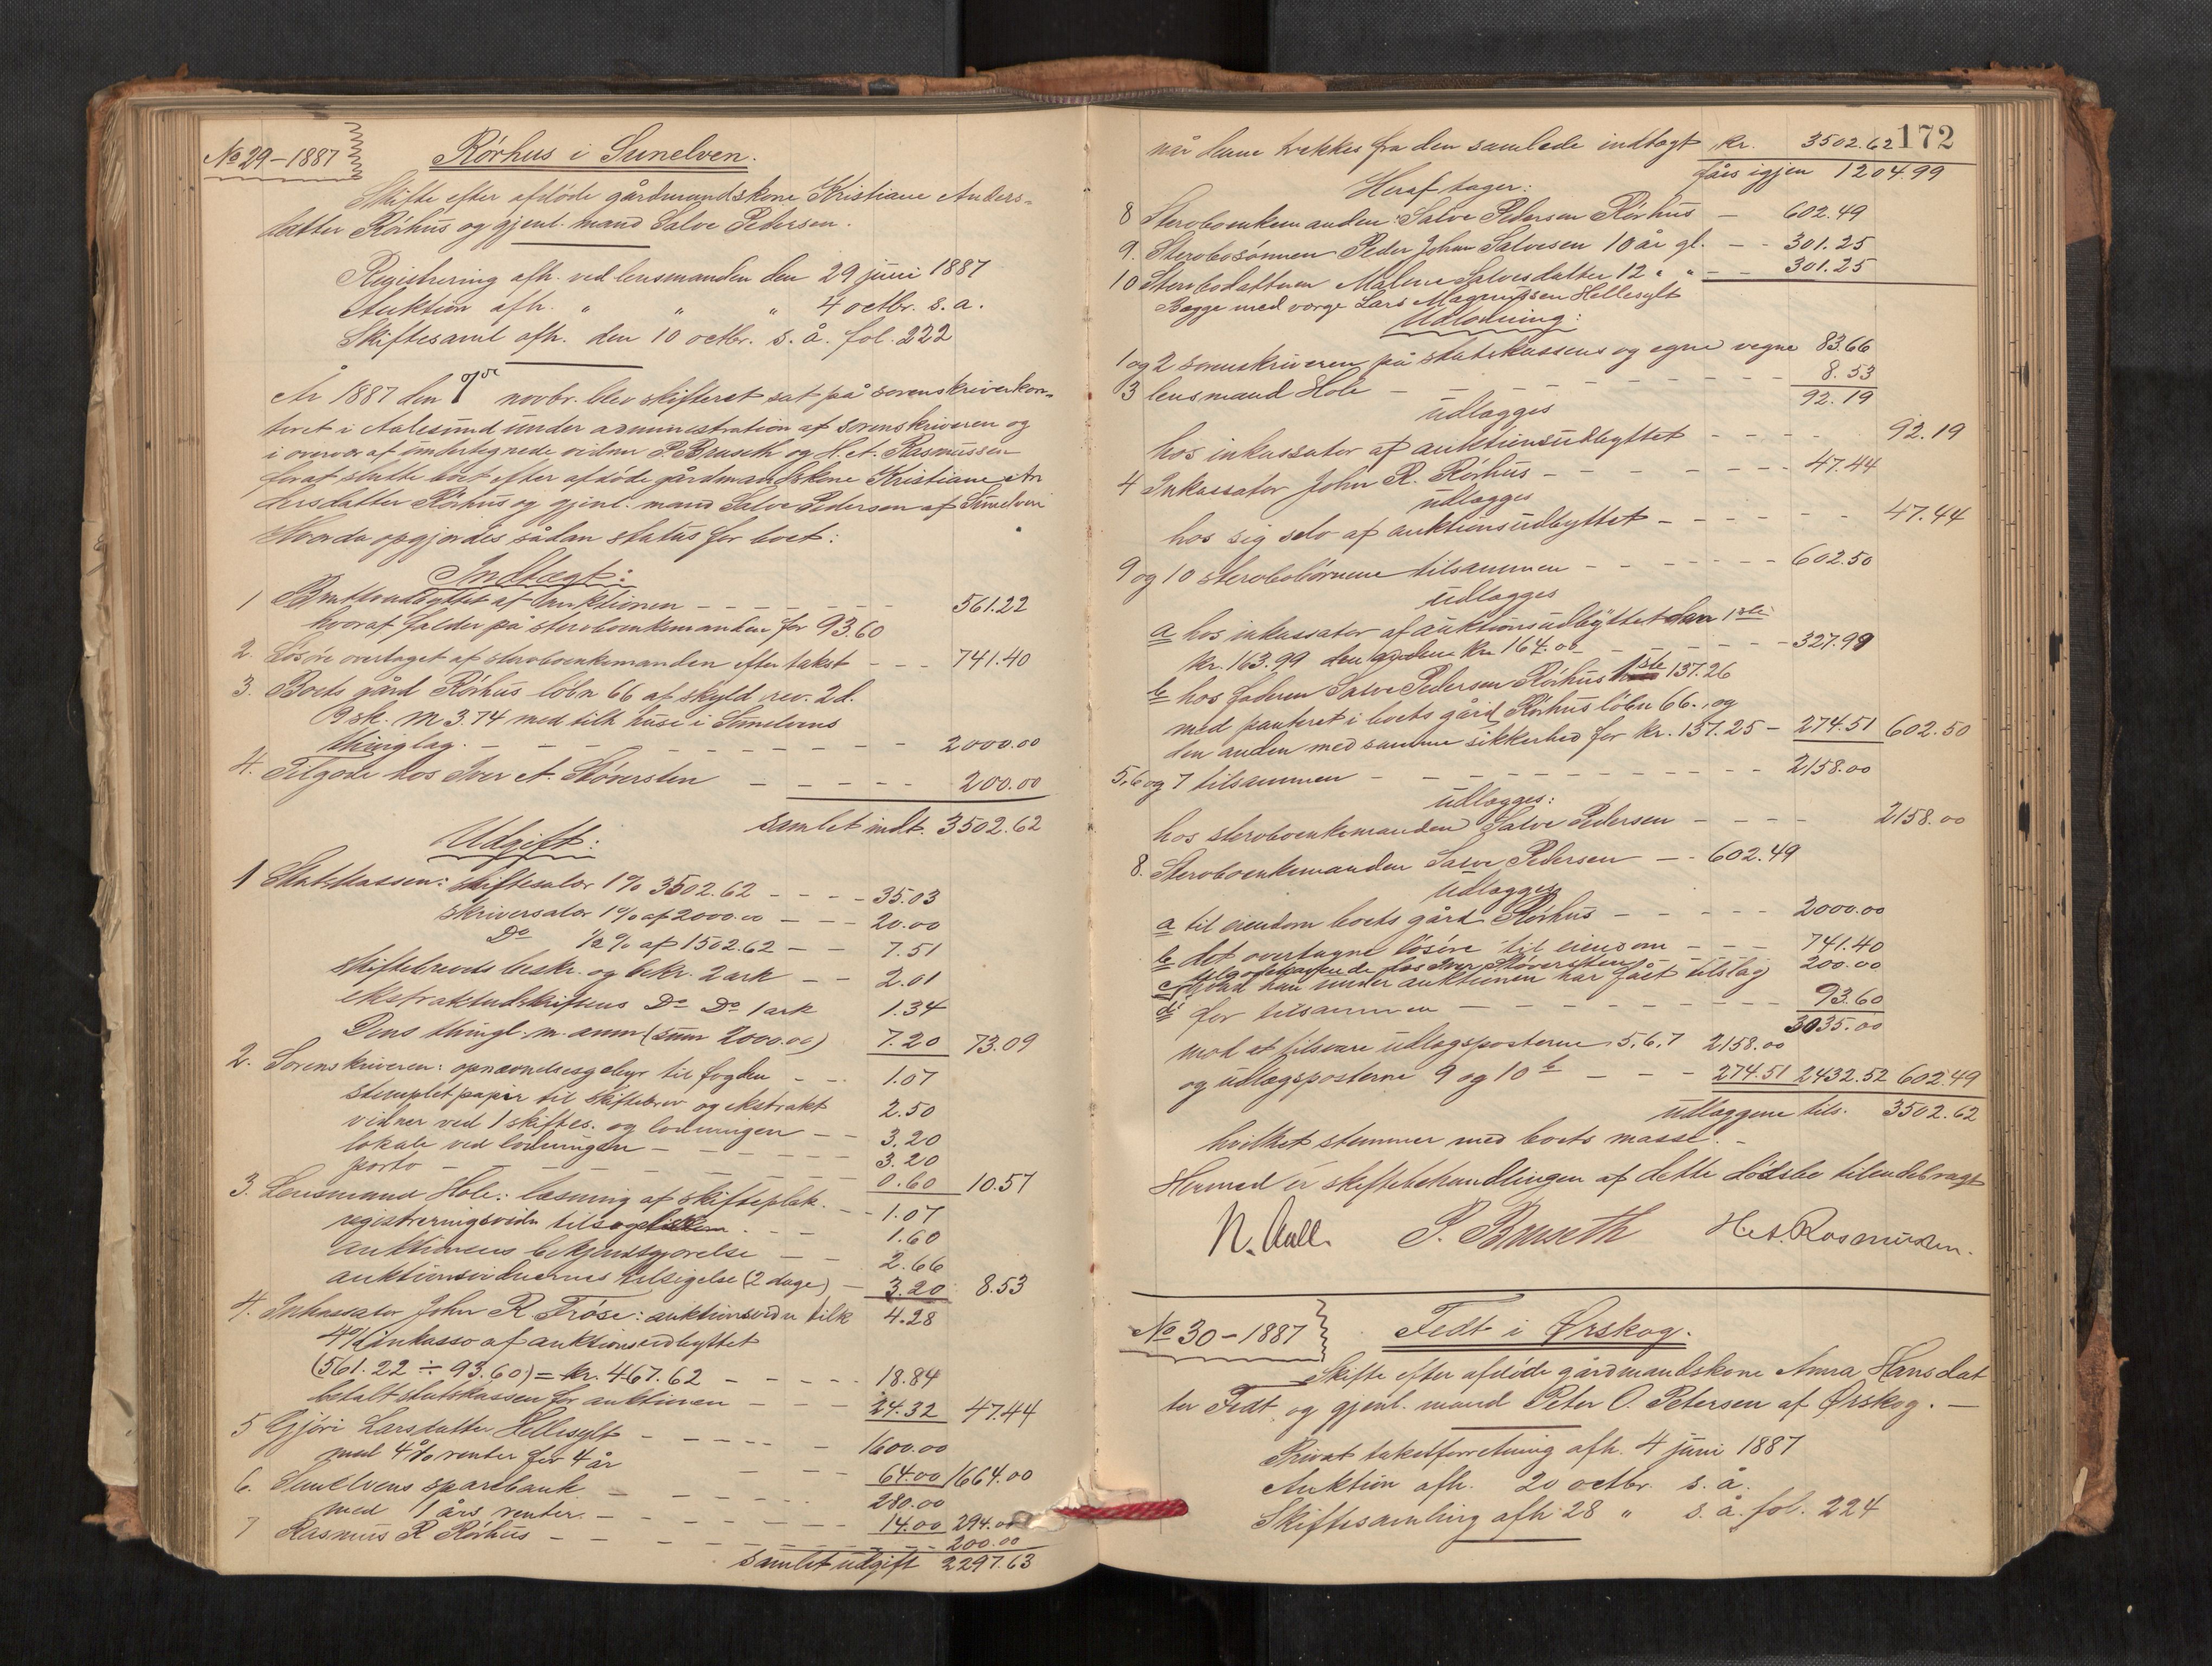 No 29-1887 Rórhus i Sunelven.
Skifte efter afdøde gårdmandskone Kristiane Anders-
datter Rórhus og gjenl. mand Salve Pedersen.
Registrering afh. ved lensmanden den 29 juni 1887
Auktion afh. " " " 4 octbr. s. a.
Skiftesaml afh. den 10 octbr. s. å. fol. 222
År 1887 den 7de novbr. blev skifteret sat på sorenskriverkon-
toret i Aalesund under administration af sorenskriveren og
i overvær af undertegnede vidner P. Bruseth og H. A. Rasmussen
for at slutte boet efter afdøde gårdmandskone Kristiane An
dersdatter Rórhus og gjenl. mand Salve Pedersen af Sunelven
Hvorda opgjordes sådan status for boet:
Indtægt:
1 Bruttoudbyttet af auktionen - - - 561.22
hvoraf falder på sterboenkemanden for 93.60
2. Løsøre overtaget af sterboenkemanden efter takst - - - 741.40
3. Boets gård Rórhus løbn 66 af skyld rev. 2 d.
19 sk. M 3.74 med tilh huse i Sunelvens
thinglag. - - - 2000.00
4. Tilgode hos Iver A. Støversten - - - 200.00
samlet indt. 3502.62
Udgift:
1 Statskassen: skiftesalør 1% 3502.62 - - - 35.03
skriversalør 1% af 2000.00 - - - 20.00
Do ½% af 1502.62 - - 7.51
skiftebrevets beskr. og bekr. 2 ark - - 2.01
ekstraktudskriftens Do Do 1 ark 1.34
Dens thingl. m. anm (sum 2000.00) 7.20 73.09
2. Sorenskriveren: opnævnelsesgebyr til fogden - - 1.07
stemplet papir til skiftebrev og ekstrakt 2.50
vidner ved 1 skiftes. og lodningen - - 3.20
lokale ved lodningen - - - 3.20
porto - - - 0.60 10.57
3. Lensmand Hole: læsning af skifteplak. - - 1.07
registreringsvidn tilsagelse - - 1.60
auktionens bekjendtgjørelse - - 2.66
auktionsvidnernes tilsigelse (2 dage) - 3.20 8.53
4. Inkassator John R. Frøse: auktionsvidn tilk 4.28
4% inkasso af auktionsudbyttet
(561.22 ÷ 93.60) = kr. 467.62 - - - 18.84
betalt statskassen for auktionen - - - 24.32 47.44
5 Gjøri Larsdatter Hellesylt - - - 1600.00
med 4% renter for 4 år - - - 64.00 1664.00
6. Sunelvens sparebank - - - 280.00
med 1 års renter. - - - 14.00 294.00
7 Rasmus R Rórhus - - - 200.00
samlet udgift 2297.63
172
når denne trækkes fra den samlede indtægt kr. 3502.62
fåes igjen 1204.99
Heraf tager:
8 Sterboenkemanden Salve Pedersen Rórhus - 602.49
9. Sterbosønnen Peder Johan Salvesen 10 år gl. - - 301.25
10 Sterbodatteren Malene Salvesdatter 12 " " - - 301.25
Begge med værge Lars Magnussen Hellesylt
Udlodning:
1 og 2 sorenskriveren på statskassens og egne vegne 83.66
3 lensmand Hole - - - 8.53
92.19
udlægges
hos inkassator af auktionsudbyttet - - - 92.19
4 Inkassator John R. Rórhus - - - 47.44
udlægges
hos sig selv af auktionsudbyttet - - - 47.44
9 og 10 sterbobørnene tilsammen - - - 602.50
udlægges
a hos inkassator af auktionsudbyttet den 1ste
kr. 163.99 den anden kr. 164.00 - - - 327.99
b hos faderen Salve Pedersen Rórhus 1ste 137.26
med panteret i boets gård Rórhus løbn 66., og
den anden med samme sikkerhed for kr. 137.25 - 274.51 602.50
5, 6 og 7 tilsammen - - - 2158.00
udlægges:
hos sterboenkemanden Salve Pedersen - - - 2158.00
8. Sterboenkemanden Salve Pedersen - - 602.49
udlægges
a til eiendom boets gård Rórhus - - - 2000.00
b det overtagne løsøre til eiendom - - - 741.40
c tilgodehavende hos Iver Støversten 200.00
d hvad han under auktionen har fået tilslag
for tilsammen - - - 93.60
3035.00
mod at tilsvare udlægsposterne 5, 6, 7 2158.00
og udlægsposterne 9 og 10 b - - - 274.51 2432.52 602.49
udlæggene tils. 3502.62
hvilket stemmer med boets masse. -
Hermed er skiftebehandlingen af dette dødsbo tilendebragt
N. Aall. P. Bruseth H. A. Rasmussen.
No 30-1887 Fedt i Ørskog.
Skifte efter afdøde gårdmandskone Anna Hansdat
ter Fedt og gjenl. mand Peter O. Petersen af Ørskog. -
Privat takstforretning afh. 4 juni 1887
Auktion afh. 20 octbr. s. å.
Skiftesamling afh 28 " s. å. fol. 224